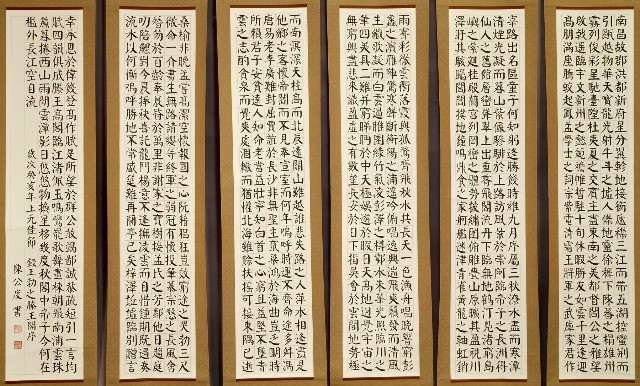 南昌故郡洪都新府星分翼軫地接衡廬襟三江而帶五湖控蠻荊而
引甌越物華天寶龍光射牛斗之墟人傑地靈徐孺下陳蕃之榻雄州
霧列俊彩星馳臺隍枕夷夏之交賓主盡東南之美都督閻公之雅望
棨戟遙臨宇文新州之懿範襜帷暫駐十旬休暇勝友如雲千里逢迎
高朋滿座騰蛟起鳳孟學士之詞宗紫電清霜王將軍之武庫家君作
宰路出名區童子何知躬逢勝餞時維九月序屬三秋潦水盡而寒潭
清煙光凝而暮山紫儼驂騑於上路訪風景於崇阿臨帝子之長洲得
仙人之舊館層巒聳翠上出重霄飛閣流丹下臨無地鶴汀鳧渚窮島
嶼之縈迴桂殿蘭宮列岡巒之體勢披繡闥俯雕甍山原曠其盈視川
澤盱其駭矚閭閻撲地鐘鳴鼎食之家舸艦迷津青雀黃龍之舳虹銷
雨霽彩徹雲衢落霞與孤鶩齊飛秋水共長天一色漁舟唱晚響窮彭
蠡之濱雁陣驚寒聲斷衡陽之浦遙吟俯暢逸興遄飛爽籟發而清風
生纖歌凝而白雲遏睢園綠竹氣凌彭澤之樽鄴水朱華光照臨川之
筆四美具二難并窮睇眄於中天極娛遊於暇日天高地迥覺宇宙之
無窮興盡悲來識盈虛之有數望長安於日下指吳會於雲間地勢極
而南溟深天柱高而北辰遠關山難越誰悲失路之人萍水相逢盡是
他鄉之客懷帝閽而不見奉宣室而何年嗚呼時運不齊命途多舛馮
唐易老李廣難封屈賈誼於長沙非無聖主竄梁鴻於海曲豈乏明時
所賴君子安貧達人知命老當益壯寧知白首之心窮且益堅不墜青
雲之志酌貪泉而覺爽處涸轍而猶懽北海雖賒扶搖可接東隅已逝
桑榆非晚孟嘗高潔空懷報國之心阮籍猖狂豈效窮途之哭勃三尺
微命一介書生無路請纓等終軍之弱冠有懷投筆慕宗愨之長風舍
簪笏於百齡奉晨昏於萬里非謝家之寶樹接孟氏之芳鄰他日趨庭
叨陪鯉對今晨捧袂喜託龍門楊意不逢撫凌雲而自惜鍾期既遇奏
流水以何慚嗚呼勝地不常盛筵難再蘭亭已矣梓澤丘墟臨別贈言
幸承恩於偉餞登高作賦是所望於群公敢竭鄙誠恭疏短引一言均
賦四韻俱成滕王高閣臨江渚佩玉鳴鸞罷歌舞畫棟朝飛南浦雲珠
簾暮捲西山雨閒雲潭影日悠悠物換星移幾度秋閣中帝子今何在
檻外長江空自流
歲次癸亥年上元佳節 錄王勃之滕王閣序
陳公度書